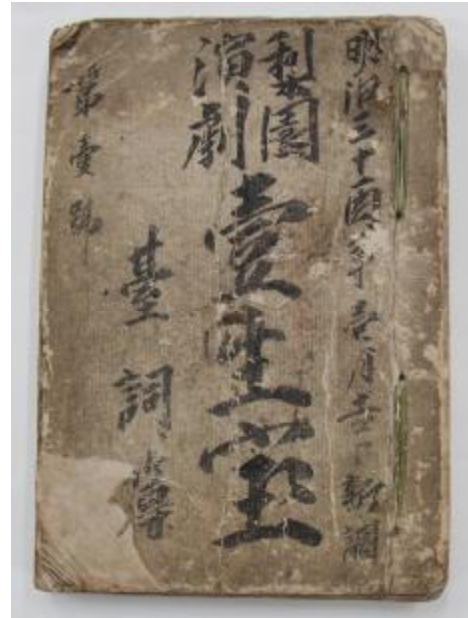 明治三十四年壹月吉日新調
梨園
演劇
壹聖堂
臺詞簿
第壹號